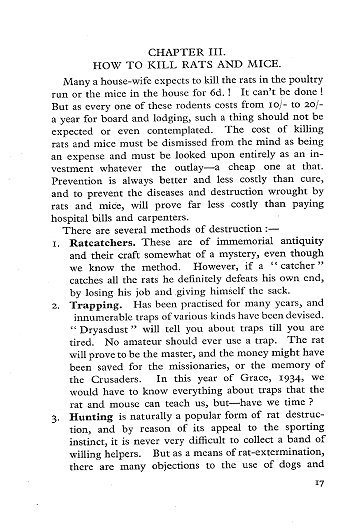 CHAPTER III.
HOW TO KILL RATS AND MICE.
Many a house-wife expects to kill the rats in the poultry
run or the mice in the house for 6d. ! It can't be done !
But as every one of these rodents costs from 10/- to 20/-
a year for board and lodging, such a thing should not be
expected or even contemplated. The cost of killing
rats and mice must be dismissed from the mind as being
an expense and must be looked upon entirely as an in-
vestment whatever the outlay—a cheap one at that.
Prevention is always better and less costly than cure,
and to prevent the diseases and destruction wrought by
rats and mice, will prove far less costly than paying
hospital bills and carpenters.
There are several methods of destruction :—
1. Ratcatchers. These are of immemorial antiquity
and their craft somewhat of a mystery, even though
we know the method. However, if a "catcher"
catches all the rats he definitely defeats his own end,
by losing his job and giving himself the sack.
2. Trapping. Has been practised for many years, and
innumerable traps of various kinds have been devised.
"Dryasdust" will tell you about traps till you are
tired. No amateur should ever use a trap. The rat
will prove to be the master, and the money might have
been saved for the missionaries, or the memory of
the Crusaders. In this year of Grace, 1934, we
would have to know everything about traps that the
rat and mouse can teach us, but—have we time ?
3. Hunting is naturally a popular form of rat destruc-
tion, and by reason of its appeal to the sporting
instinct, it is never very difficult to collect a band of
willing helpers. But as a means of rat-extermination,
there are many objections to the use of dogs and
17